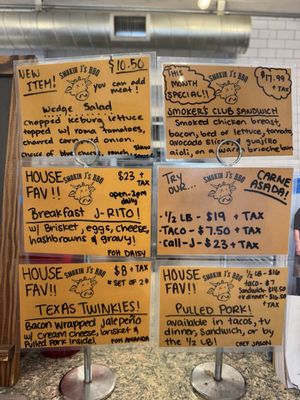 NEW
ITEM!
SMOKIN J'S BBQ
$10.50
you can add
meat!
Wedge Salad
chopped iceburg lettuce
topped w/ roma tomatoes,
charred corn, onion.
choice of bleu cheese, ranch
THIS
MONTH
SPECIAL!!
SMOKIN J'S BBQ
$17.99
+ TAX
SMOKER'S CLUB SANDWICH
Smoked chicken breast,
bacon, bed of lettuce, tomato,
avocado slices, guajillo
aioli, on a brioche bun
HOUSE
FAV!!
SMOKIN J'S BBQ
$23 +
TAX
open-2pm
daily
Breakfast J-RITO!
w/ Brisket, eggs, cheese,
hashbrowns & gravy!
FOH DAISY
TRY
OUR...
SMOKIN J'S BBQ
CARNE
ASADA!
-1/2 LB - $19 + TAX
-TACO - $7.50 + TAX
-CALI-J - $23 + TAX
HOUSE
FAV!!
SMOKIN J'S BBQ
$8 + TAX
*SET OF 2*
TEXAS TWINKIES!
Bacon wrapped jalepeño
w/ Cream cheese, brisket &
Pulled Pork inside!
FOH AMANDA
HOUSE
FAV!!
SMOKIN J'S BBQ
1/2 LB - $16
taco - $7
Sandwich - $14.50
tv dinner - $16.50
+ TAX
PULLED PORK!
available in tacos, tv
dinner, sandwich, or by
the 1/2 LB!
CHEF JASON